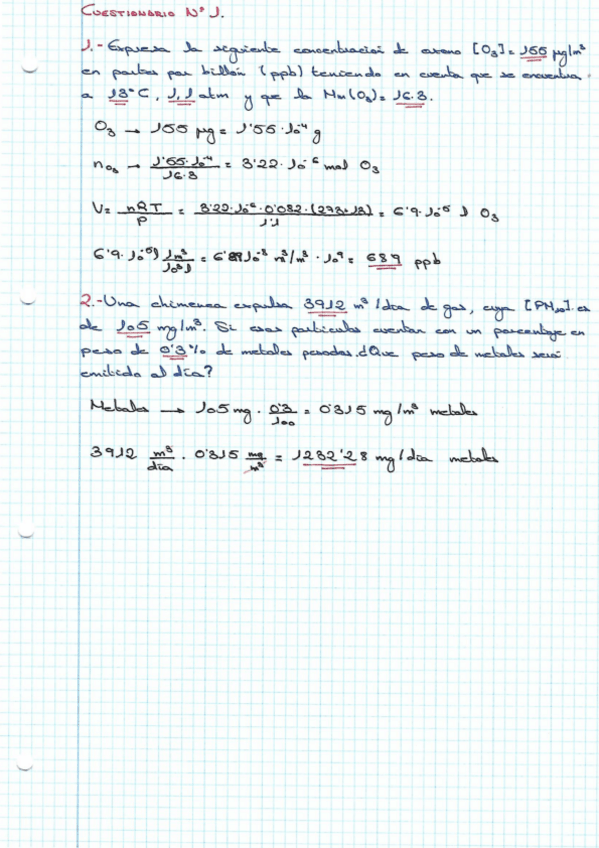 CUESTIONARIO Nº 1.
1.- Expresa la siguiente concentración de ozono [O3] = 155 µg/m³
en partes por billón (ppb) teniendo en cuenta que se encuentra
a 13°C, 1,1 atm y que la Mm(O3) = 16·3.
O3 → 155 µg = 1'55·10⁻⁴ g
nO3 → 1'55·10⁻⁴ / 16·3 = 3'22·10⁻⁶ mol O3
V = nRT / P = 3'22·10⁻⁶·0'082·(273+13) / 1'1 = 6'9·10⁻⁵ l O3
6'9·10⁻⁵ l 1m³ / 10³ l = 6'89·10⁻⁸ m³/m³ · 10⁹ = 68'9 ppb
2.- Una chimenea expulsa 3912 m³/día de gas, cuya [PM10] es
de 105 mg/m³. Si esas partículas cuentan con un porcentaje en
peso de 0'3% de metales pesados ¿Que peso de metales será
emitido al día?
Metales → 105 mg · 0'3 / 100 = 0'315 mg/m³ metales
3912 m³/día · 0'315 mg/m³ = 1232'28 mg/día metales